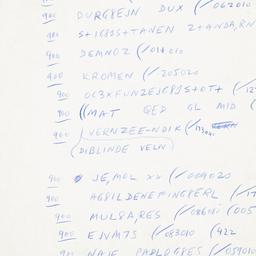 900 DURG8EJN DUX (/062010
900 S+IG8JS+TANEN 2+ANDA,RN
900 DEMNOZ (/014010
900 KROMEN (/205020
900 OC3XFUNZEJG8JS+OT+ (/12
900 ((MAT QED GL MID (
900 (VERNZEE-NDIK (/
(DIBLINDE VELN)
900 JE,MOL xx (/009020
900 AG8ILDENEFINGPERL (/17
900 MUL8A,RES (/08601 (005
900 EJVM7S (/083010 (422
900 NAJE PABLOG8ES (/059010